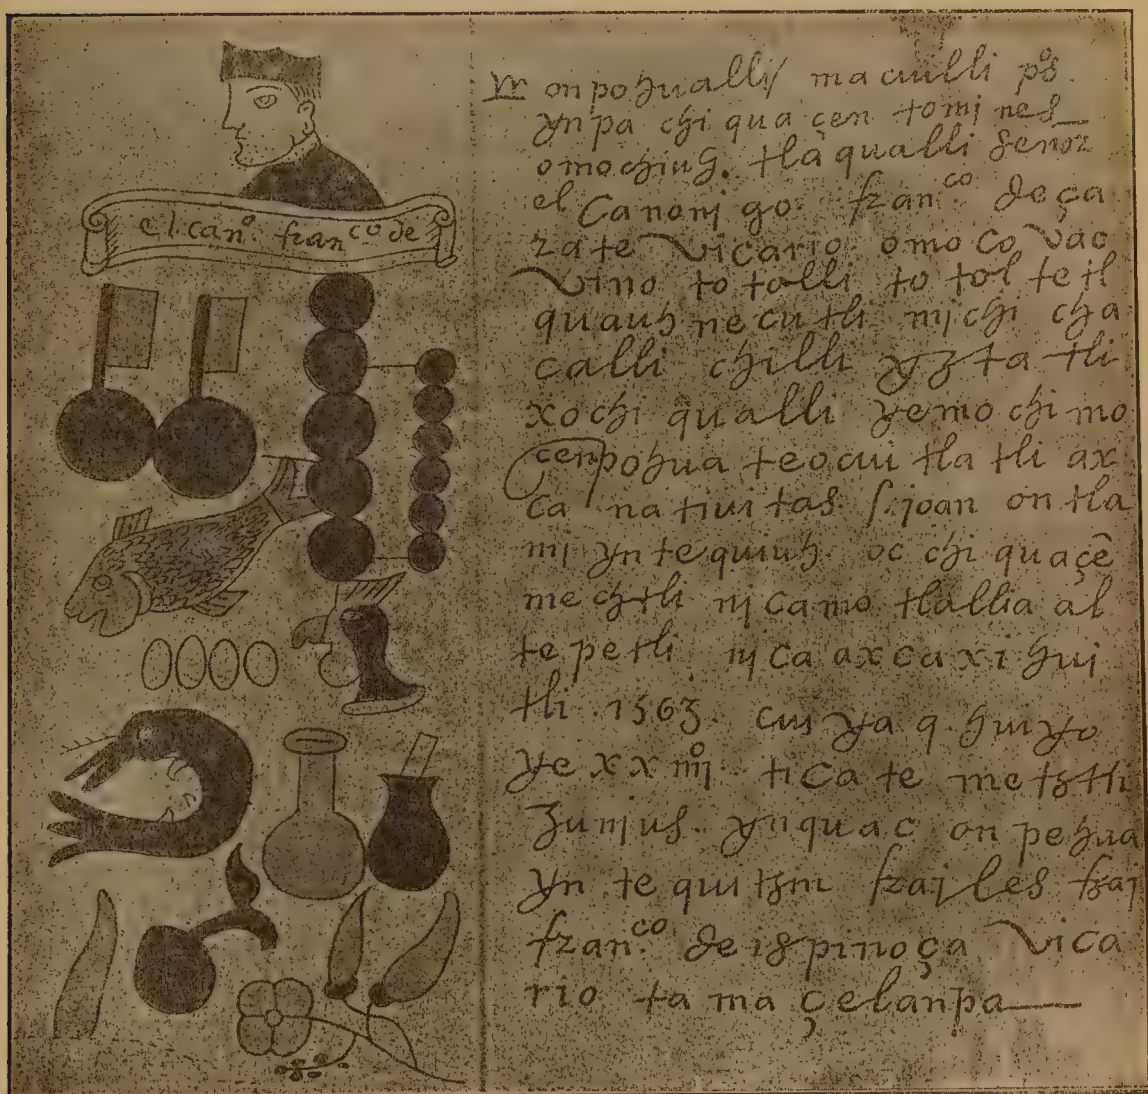 el can.º franco de
onpohualli / macuilli p̊s
ynpa chiquaçen tomines
omochiuh. tlaqualli señor
el Canonigo. franco de ça
rate vicario omocovac
vino totolli totoltetl
quauhnecutli michi cha
calli chilli yztatli
xochiqualli yemochimo
çenpohua teocuitlatli ax
ca natiuitas s. joan ontla
mi yntequiuh. oc chiquaçē
mechtli nicamo tlallia al
tepetli nica axcaxihui
tli .1563. cuiya q. huiyo
ye xxiiij̊. ticate metztli
Junius. ynquac onpehua
yn tequitzin frailes frai
franco de ispinoça vica
rio tamaçelanpa